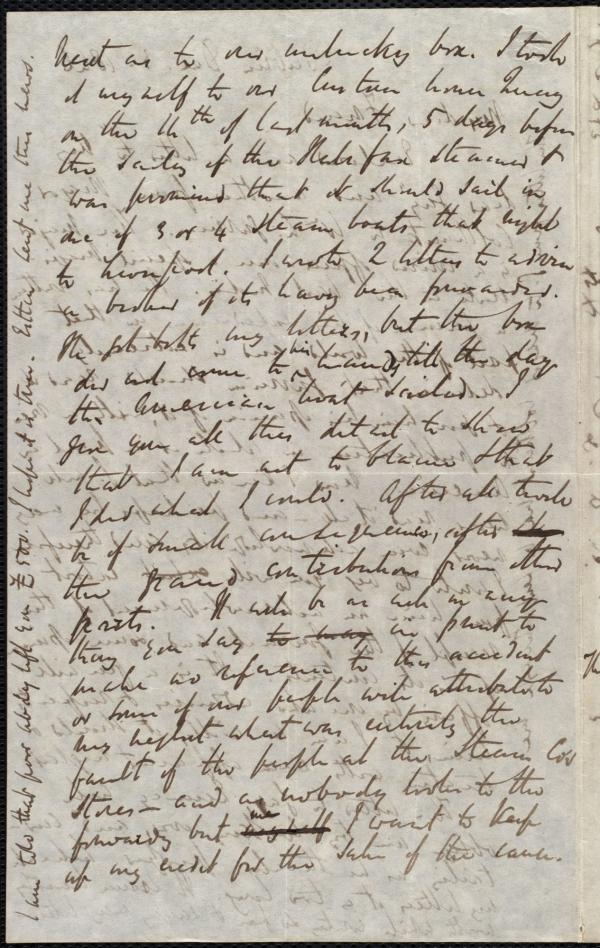 next as to our unlucky box. I took
it myself to our Custom house Quay
on the 14th of last month, 5 days before
the sailing of the Halifax Steamer &
was promised that it should sail in
one of 3 or 4 Steam boats that night
to Liverpool. I wrote 2 letters to advise
a broker of its having been forwarded.
He got both my letters, but the box
did not come to his hands, till the day
the American boat sailed. I
give you all this detail to shew
that I am not to blame & that
I did what I could. After all twill
be of small consequence, after the
the grand contributions from other
parts. It will be as well in any
thing you say to may in print to
make no reference to this accident
or some of our people will attribute to
my neglect what was entirely the
fault of the people at the Steam Co's
Stores - and as nobody looks to the
forwardg but myself me I want to keep
up my credit for the sake of the cause.
I am told that poor abdy left you £500. I hope it is true. Estlin sent me this news.